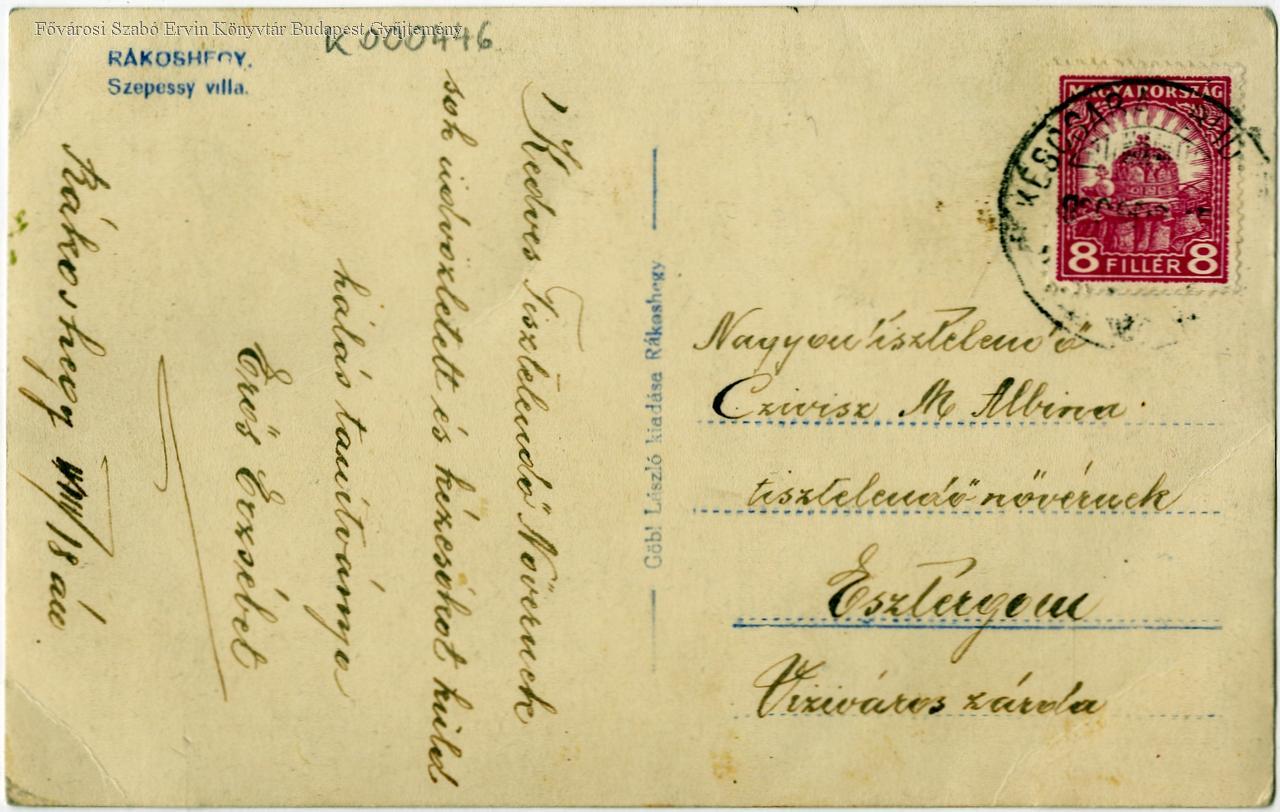 Fővárosi Szabó Ervin Könyvtár Budapest Gyűjtemény
K 000446
RÁKOSHEGY.
Szepessy villa.
Kedves Tisztelendő Nővérnek
sok üdvözletett és kézcsókot küld
hálás tanítványa
Erős Erzsébet
Rákoshegy VIII/18 án
Göbl László kiadása Rákoshegy
MAGYARORSZÁG
8 FILLÉR 8
Nagyontisztelendő
Czivisz M Albina
tisztelendő-nővérnek
Esztergom
Viziváros zárda